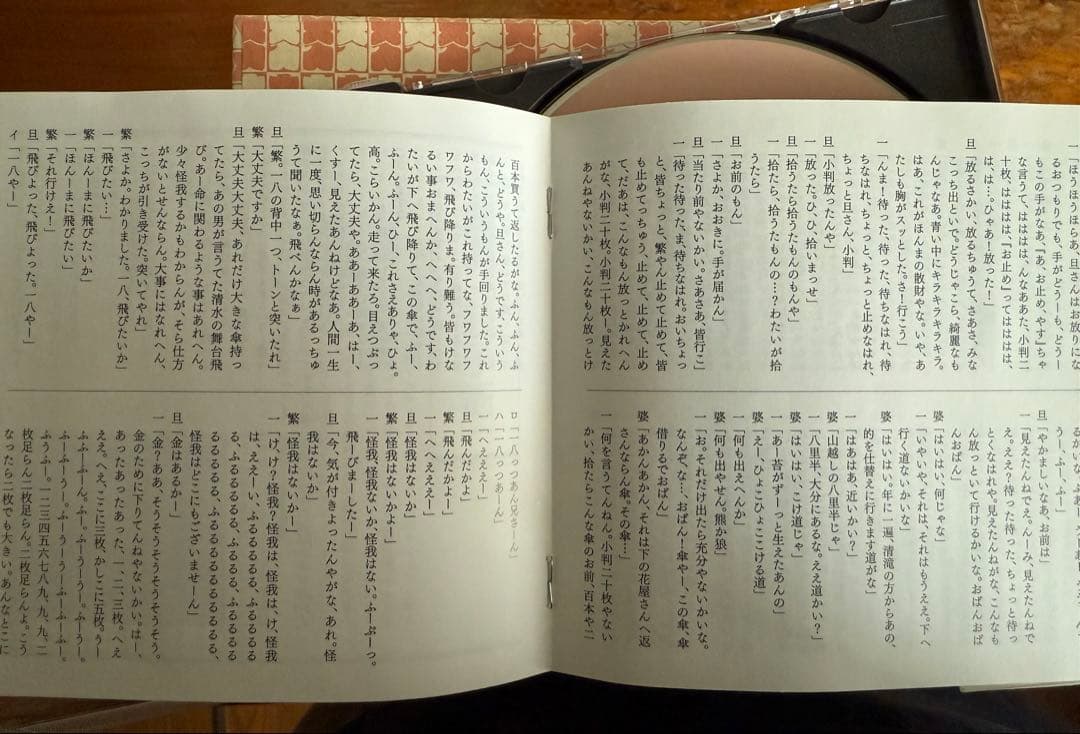 一「ほうほうほらあっ。旦さんはお放りにな
るおつもりでも、手がどうーも、どうー
もこの手がなあ。『あ、お止めやす』ちゃ
な言うて、はははは、んなああた、小判二
十枚、はははは、『お止め』ってははははは、
ははは…。ひゃあ！放った！」
旦「放るさかい、放るちゅうて、さあさ、みな
こっち出といで。どうじゃこら、綺麗なも
んじゃなあ。青い中にキラキラキラキラ。
はあ、これがほんまの散財やな。いや、あ
たしも胸がスッとした。さ！行こう」
一「んま！待った、待った、待ちなはれ、待
ちなはれ、ちょっと、ちょっと止めなはれ、
ちょっと旦さん、小判」
旦「小判放ったんや」
一「放った。ひ、ひ、拾いまっせ」
旦「拾うたら拾うたもんのもんや」
一「拾たら、拾うたもんの…？わたいが拾
うたら」
旦「お前のもん」
一「さよか、おおきに。手が届かん」
旦「当たり前やないかい。さあさあ、皆行こ」
一「待った待った、ま、待ちなはれ。おいちょっ
と、皆ちょっと、繁やん止めて止めて、皆
も止めてっちゅう、止めて、止めて、止め
て、だあは、こんなもん放っとかれへん
がな、小判二十枚。小判二十枚ー。見えた
あんねやないかい、こんなもん放っとけ
るかいな、ふー、ふー
う、ふー、ふー
旦「やかましいなあ、お前は」
一「見えたんねでえ。んーみ、見えたんねで
ええ？待った待った、ちょっと待っ
とくなはれや。見えたんねがな、こんなも
ん放っといて行けるかいな。おばんおば
んおばん」
婆「はいはい、何じゃな」
一「いやいや、それは、それはもうええ。下へ
行く道ないかいな」
婆「はいはい。年に一遍、清滝の方からあの、
的を仕替えに行きます道がな」
一「はあはあ、近いかい？」
婆「山越しの八里半じゃ」
一「八里半、大分にあるな。ええ道かい？」
婆「はいはい、こけ道じゃ」
一「あー苔がずーっと生えたあんの」
婆「えー、ひょこひょここける道」
一「何も出えへんか」
婆「何も出やせん。熊か狼」
一「お。それだけ出たら充分やないかいな。
なんぞ、な…、おばんー傘やー、この傘、傘
借りるでおばん」
婆「あかんあかん、それは下の花屋さんへ返
さんならん傘、その傘…」
一「何を言うてんねん。小判二十枚やない
かい、拾たらこんな傘のお前、百本や二
百本買うて返したるがな。ふん、ふん、ふ
んと、どうや、旦さん、どうです、こういう
もん、こういうもんが手回りました。これ
からわたいがこれ持ってな、フワフワフ
ワフワ、飛び降りま。有り難う。皆もけな
るい事おまへんか、へへへ、どうです、わ
たいが下へ飛び降りて、この傘で、ふー、
ふーん。ふーん、ひー、これさえありゃ、ひょ。
高。こらいかん。走って来たろ。目えつぶっ
てたら、大丈夫や。ああーああーあ、はー、
くすー、見えたあんねけどなあ。人間一生
に一度、思い切らんならん時があるっちゅ
うて聞いたなぁ。飛べんかなぁ」
旦「繁。一八の背中一つ、トーンと突いたれ」
繁「大丈夫ですか」
旦「大丈夫大丈夫、あれだけ大きな傘持っ
てたら、あの男が言うてた清水の舞台飛
び。あー命に関わるような事はあれへん。
少々怪我するかもわからんが、そら仕方
がないとせんならん。大事にはなれへん、
こっちが引き受けた。突いてやれ」
繁「さよか。わかりました。一八、飛びたいか」
一「飛びたい…」
繁「ほんーまに飛びたいか」
一「ほんーまに飛びたい」
繁「それ行けえ！」
旦「飛びよった、飛びよった。一八やー」
イ「一八やー」
ロ「一八っつあん兄さーん」
ハ「一八っつあーん」
一「へえええー」
旦「飛んだかよ」
繁「飛んだかよー」
一「へへえええー」
旦「怪我はないかー」
繁「怪我はないかよー」
一「怪我、怪我ないか、怪我はない。ふーぷーっ。
飛ーびまーしたー」
旦「今、気が付きよったんやがな、あれ。怪
我はないか」
繁「怪我はないかー」
一「け、け？怪我？怪我は、怪我は、け、怪我
は、ええーい、ふるるるるる、ふるるるる
る、ふるるるるる、ふるるるる、ふるるるる
るるるるる、ふるるるるるるるるるるる、
怪我はどこにもございませーん」
旦「金はあるかー」
一「金？ああ、そうそうそうそうそうそう。
金のために下りてんねやないかい。はー、
あったあったあった、一、二、三枚。へえ
ええ。へえ、ここに三枚、かしこに五枚。うー
ふーふーうー。ふーうーうーふーふーふー。
ふうふー。一二三四五六七八九、九、九、二
枚足らん二枚足らん。二枚足らんよ。こう
なったら一枚でも大きい。あんなとこに